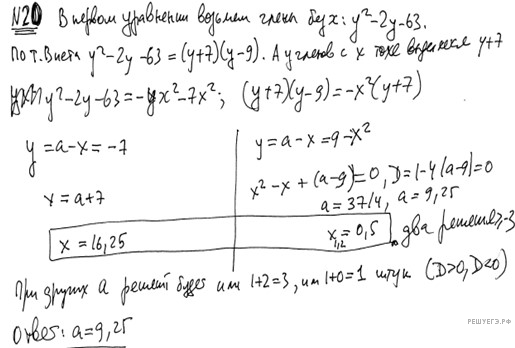 N20 В первом уравнении возьмем члены без x: y²-2y-63.
По т. Виета y²-2y-63=(y+7)(y-9). А у членов с x тоже выделяем y+7
y²-2y-63=-yx²-7x²; (y+7)(y-9)=-x²(y+7)
y=a-x=-7
x=a+7
x=16,25
y=a-x=9-x²
x²-x+(a-9)=0, D=1-4(a-9)=0
a=37/4, a=9,25
x₁,₂=0,5
два решения ≥-3
При других a решений будет или 1+2=3, или 1+0=1 штук (D>0, D<0)
Ответ: a=9,25
РЕШУЕГЭ.РФ